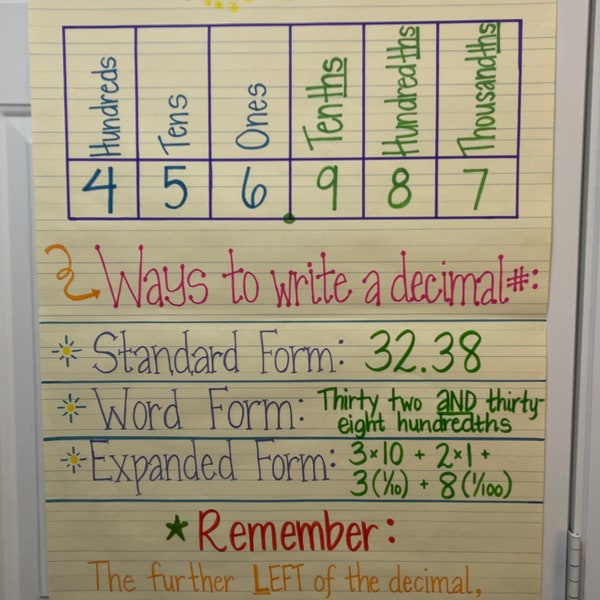 Hundreds Tens Ones Tenths Hundredths Thousandths
4 5 6 9 8 7
Ways to write a decimal #:
Standard Form: 32.38
Word Form: Thirty two AND thirty-
eight hundredths
Expanded Form: 3×10 + 2×1 +
3(1/10) + 8(1/100)
Remember:
The further LEFT of the decimal,